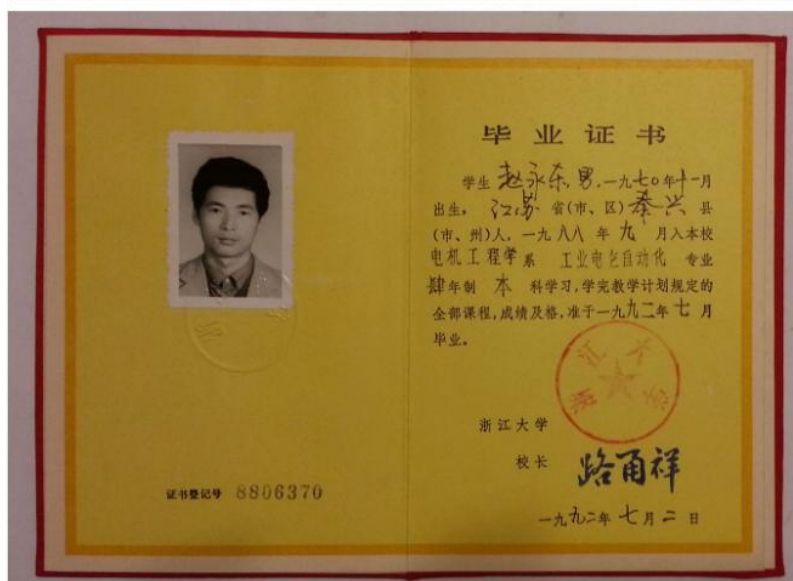 证书登记号 8806370
毕业证书
学生 赵永东 男,一九七〇年十一月
出生, 江苏 省(市、区) 泰兴 县
(市、州)人,一九八八年九月入本校
电机工程学系 工业电气自动化 专业
肆年制 本 科学习,学完教学计划规定的
全部课程,成绩及格,准于一九九二年七月
毕业。
浙江大学
浙江大学
校长 路甬祥
一九九二年七月二日